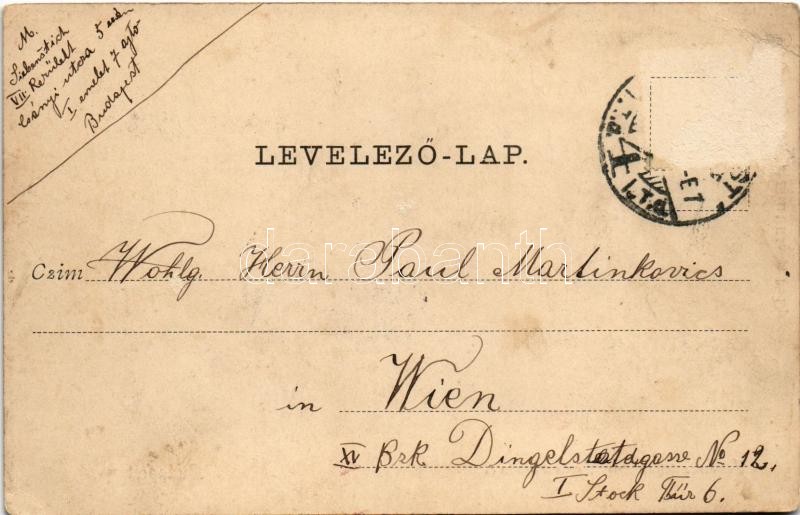 M.
Siebenstich
VII. Kerület
Csányi utcza 5 szám
I emelet 7 ajto
Budapest
LEVELEZŐ-LAP.
Czim Wohlg. Herrn Paul Martinkovics
darabanth
in Wien
XV Bzk Dingelstedtgasse No 12.
I Stock Tür 6.